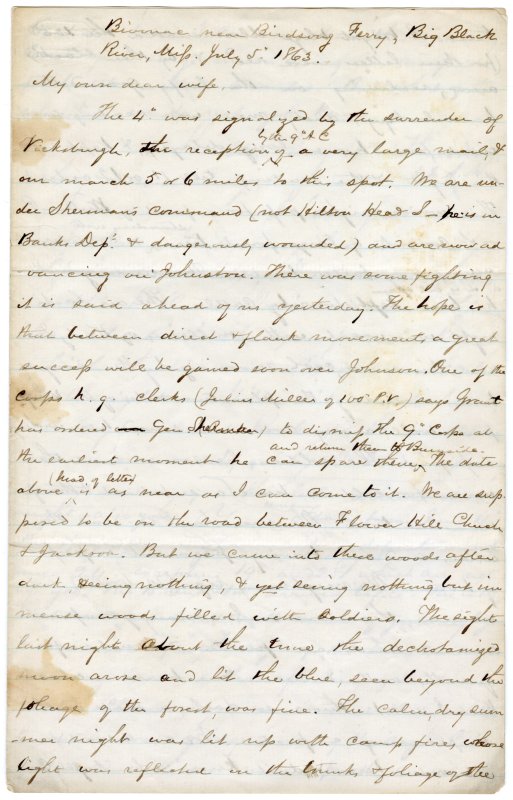 Bivouac near Birdsong Ferry, Big Black
River, Miss. July 5" 1863.
My own dear wife,
The 4" was signalized by the surrender of
by the 9" A C
Vicksburgh, the reception of a very large mail, &
our march 5 or 6 miles to this spot. We are un-
der Sherman's command (not Hilton Head S— he is in
Banks Dep't & dangerously wounded) and are now ad
vancing on Johnston. There was some fighting
it is said ahead of us yesterday. The hope is
that between direct & flank movements a great
success will be gained soon over Johnson. One of the
corps h. q. clerks (Julius Miller of 100" P.V.) says Grant
has ordered Gen Sherman) to dismiss the 9" Corps at
and return them to Burnside.
the earliest moment he can spare them, The date
(head of letter)
above is as near as I can come to it. We are sup-
posed to be on the road between Flower Hill Church
& Jackson. But we came into these woods after
dark, seeing nothing, & yet seeing nothing but im
mense woods filled with soldiers. The sight
last night about the time the
moon arose and lit the blue, seen beyond the
foliage of the forest, was fine. The calm, dry sum
mer night was lit up with camp fires whose
light was reflected on the trunks & foliage of the